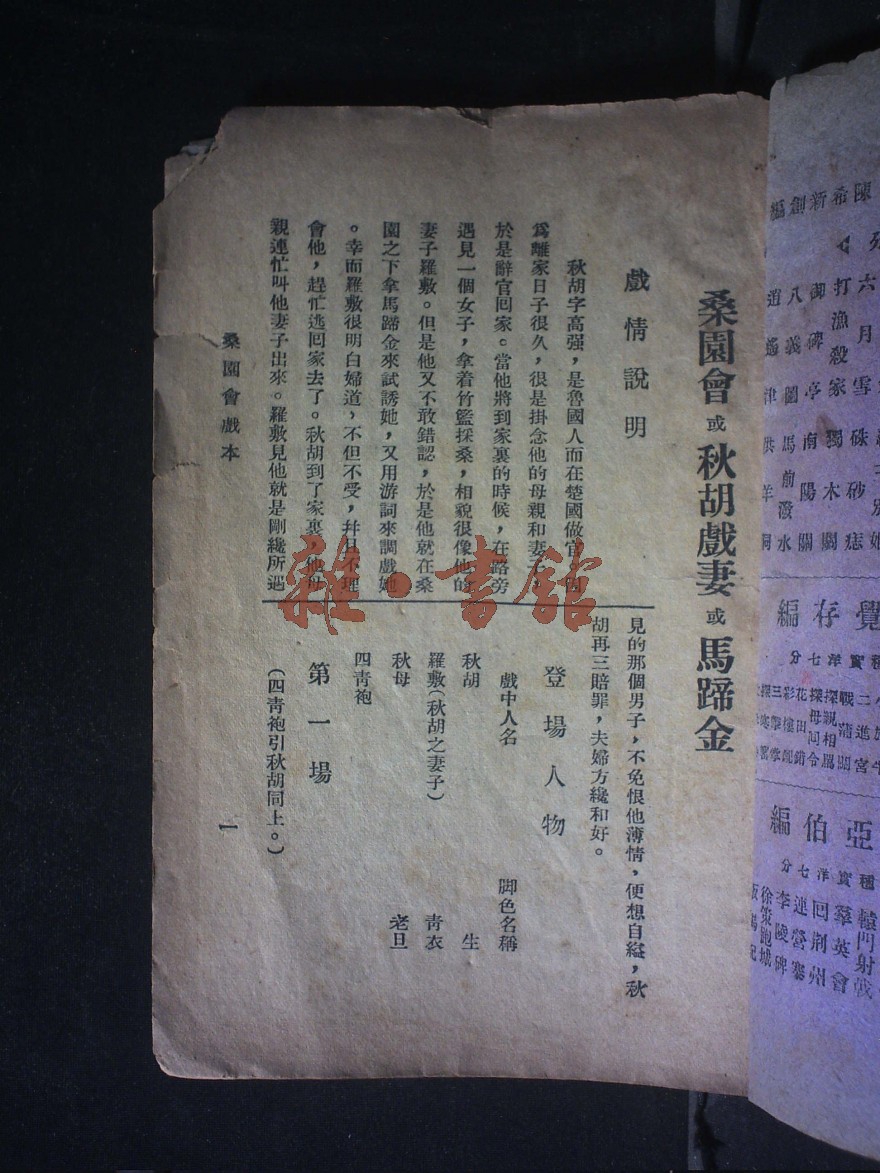 桑園會 或 秋胡戲妻 或 馬蹄金
戲情說明
秋胡字高强，是魯國人而在楚國做官，因
爲離家日子很久，很是掛念他的母親和妻子，
於是辭官回家。當他將到家裏的時候，在路旁
遇見一個女子，拿着竹籃採桑，相貌很像他的
妻子羅敷。但是他又不敢錯認，於是他就在桑
園之下拿馬蹄金來試誘她，又用游詞來調戲她
。幸而羅敷很明白婦道，不但不受，幷且不理
會他，趕忙逃回家去了。秋胡到了家裏，他母
親連忙叫他妻子出來。羅敷見他就是剛纔所遇
見的那個男子，不免恨他薄情，便想自縊，秋
胡再三賠罪，夫婦方纔和好。
登場人物
戲中人名 脚色名稱
秋胡 生
羅敷(秋胡之妻子) 靑衣
秋母 老旦
四靑袍
第一場
(四靑袍引秋胡同上。)
桑園會戲本 一
雜·書館
陳希新創編
六月雪 硃砂痣
打漁殺家 獨木關
御碑亭 南陽關
八義圖 馬前潑水
逍遙津 洪羊洞
覺存編
種實洋七分
二進宮
戰蒲關
探親相罵
探母回令
花田錯
彩樓配
三擊掌
亞伯編
種實洋七分
轅門射戟
羣英會
回荆州
連營寨
李陵碑
徐策跑城